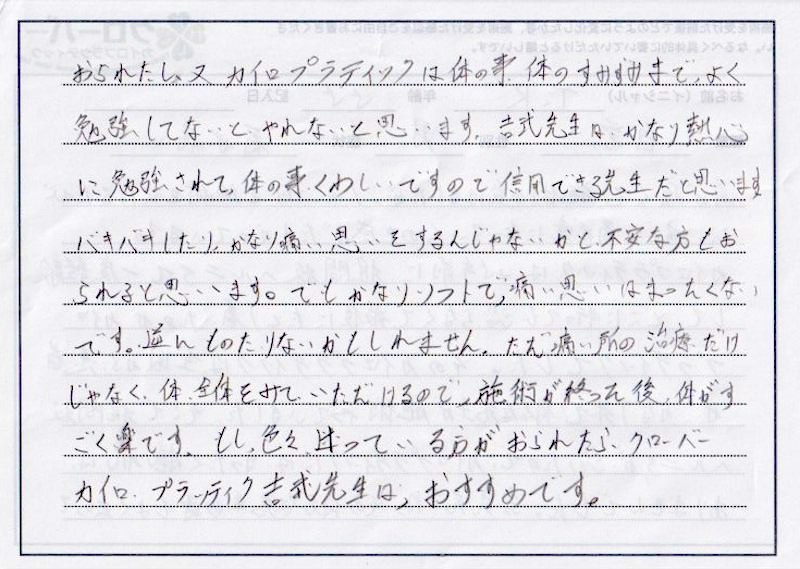 おられたし、又 カイロプラティックは体の事、体のすみずみまで、よく
勉強してないと、やれないと思います。吉武先生は、かなり熱心
に勉強されて、体の事、くわしいですので信用できる先生だと思います
バキバキしたり、かなり痛い思いをするんじゃないかと、不安な方もお
られると思います。でもかなりソフトで、痛い思いはまったくない
です。逆にものたりないかもしれません。ただ痛い所の治療だけ
じゃなく、体全体をみていただけるので、施術が終った後、体がす
ごく楽です。もし、色々、迷っている方がおられたら、クローバー
カイロプラティク吉武先生は、おすすめです。